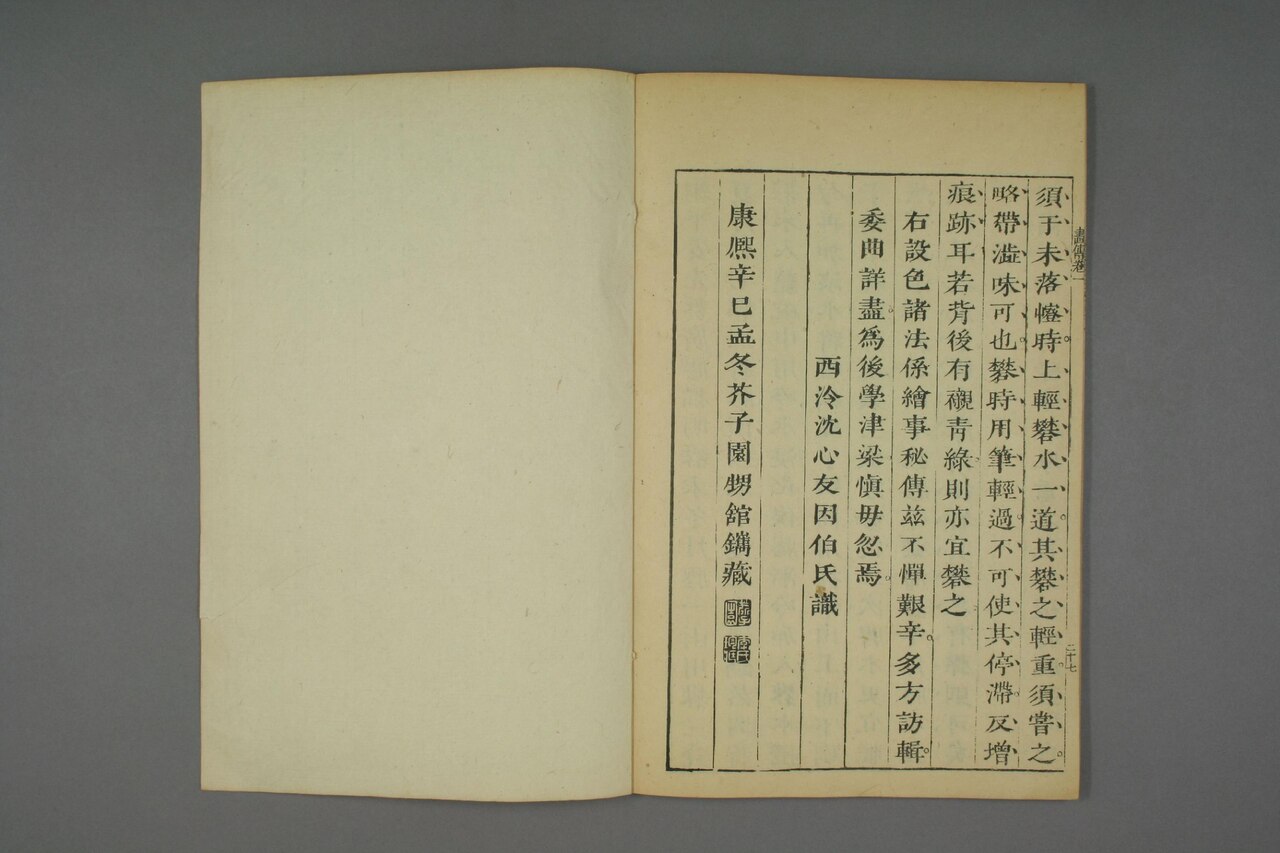 須于未落幐時上輕礬水一道其礬之輕重須嘗之
略帶澁味可也礬時用筆輕過不可使其停滯反增
痕跡耳若背後有襯青綠則亦宜礬之
右設色諸法係繪事秘傳兹不憚艱辛多方訪輯
委曲詳盡爲後學津梁愼毋忽焉
西泠沈心友因伯氏識
康熙辛巳孟冬芥子園甥舘鐫藏
畫傳卷一
二十七